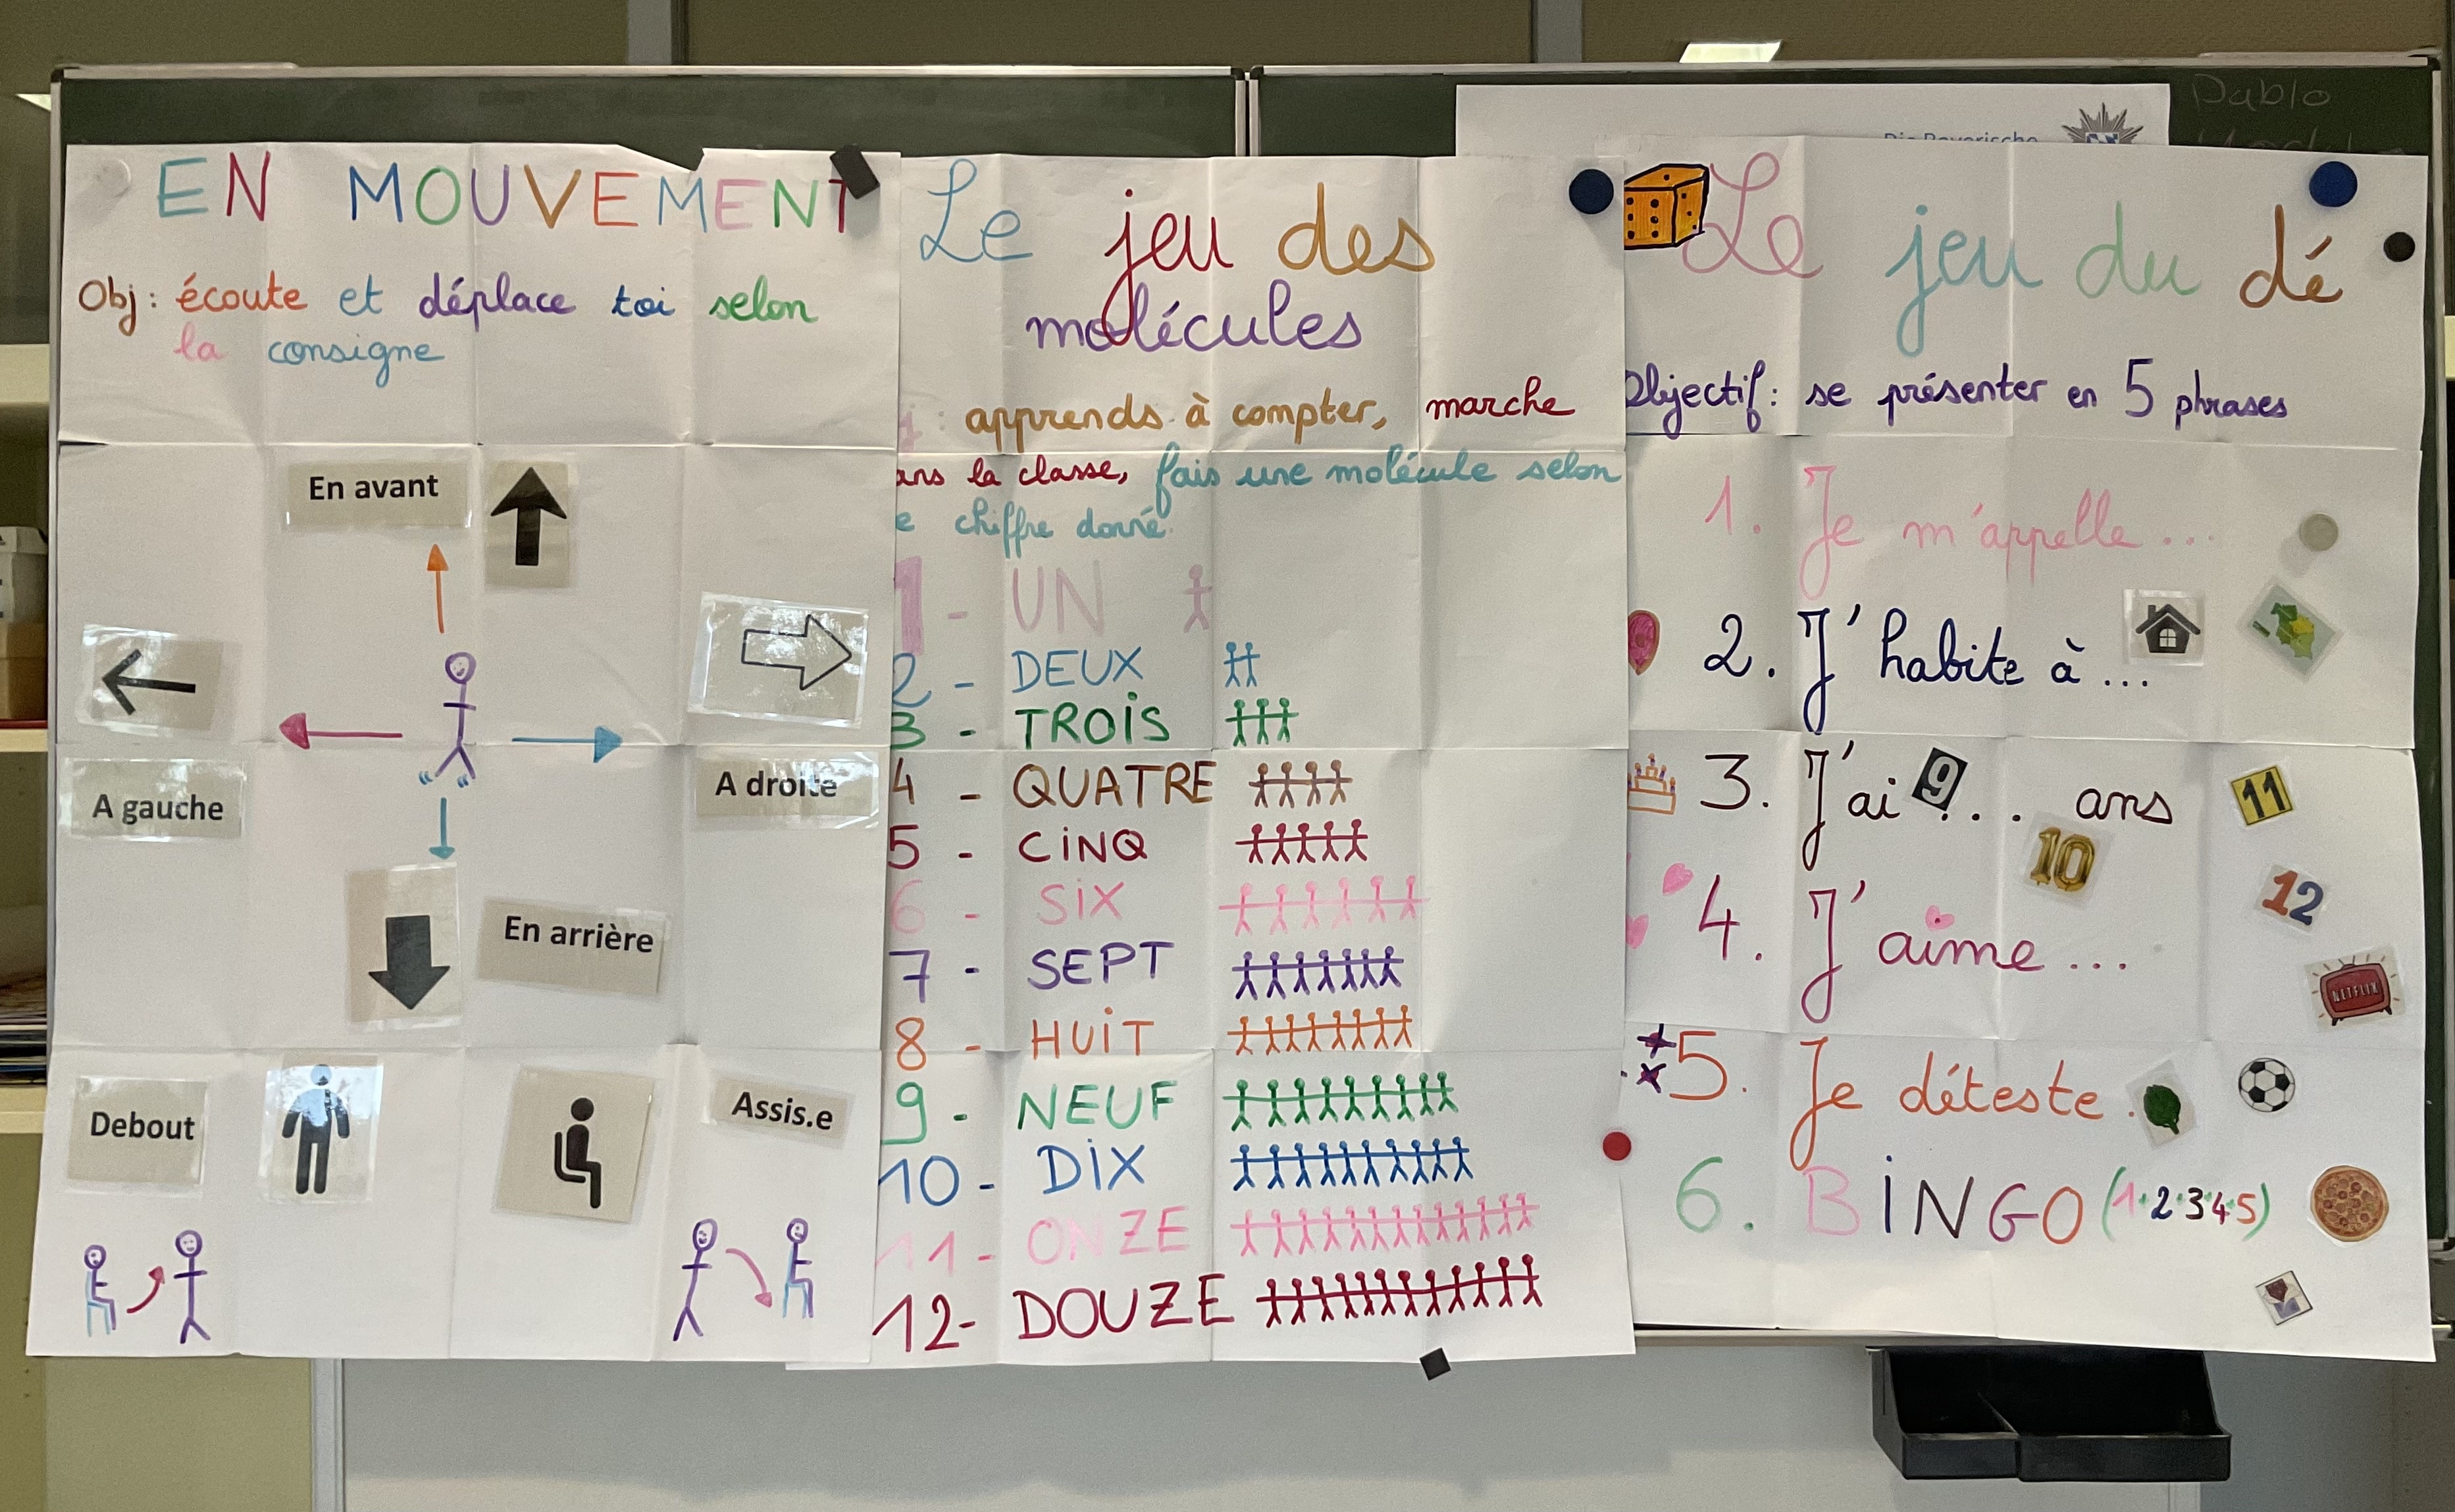 EN MOUVEMENT
Obj: écoute et déplace toi selon
la consigne
En avant
A gauche
A droite
En arrière
Debout
Assis.e
Le jeu des
molécules
: apprends à compter, marche
ans la classe, fais une molécule selon
e chiffre donné.
1 - UN
2 - DEUX
3 - TROIS
4 - QUATRE
5 - CINQ
6 - SIX
7 - SEPT
8 - HUIT
9 - NEUF
10 - DIX
11 - ONZE
12 - DOUZE
Die Bayerische
Pablo
Le jeu du dé
Objectif: se présenter en 5 phrases
1. Je m'appelle...
2. J'habite à...
3. J'ai 9... ans
11
10
12
4. J'aime...
NETFLIX
5. Je déteste.
6. BINGO (1·2·3·4·5)